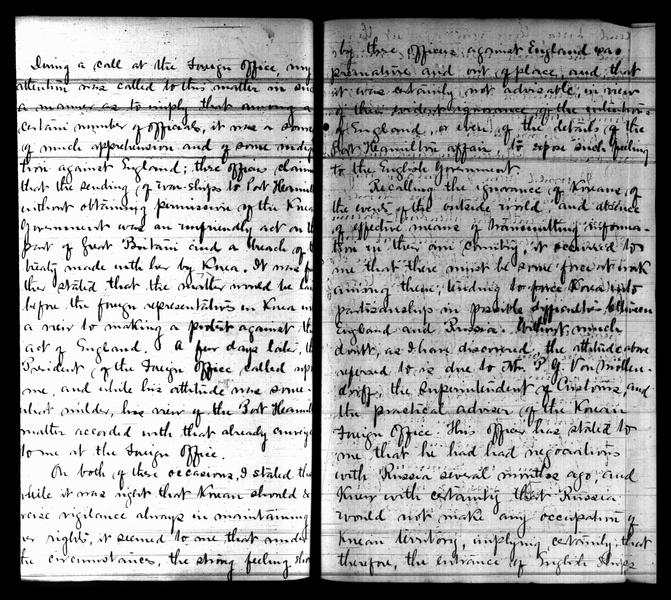 During a call at the Foreign Office, my
attention was called to this matter in such
a manner as to imply that among a
certain number of officials, it was a source
of much apprehension and of some indigna
tion against England; three officers claim
that the sending of war-ships to Port Hamil
without obtaining permission of the Korea
Government was an unfriendly act on th
part of Great Britain and a breach of t
treaty made with her by Korea. It was
then stated that the matter would be lai
before the foreign representatives in Korea wi
a view to making a protest against th
act of England. A few days later, th
President of the Foreign Office called upo
me, and while his attitude was some-
what milder, his view of the Port Hamil
matter accorded with that already
to me at the Foreign Office.
On both of these occasions, I stated tha
while it was right that Korean should
vigilance always in maintaining
her rights, it seemed to me that under
the circumstances, the strong feeling
by three officers against England was
premature and out of place, and that
it was certainly not advisable, in view
of their evident ignorance of the intentions
of England, or even of the details of the
Port Hamilton affair, to expose such feeling
to the English Government.
Recalling the ignorance of Koreans of
the events of the outside world, and absence
of effective means of transmitting informa-
tion in their own country, it occurred to
me that there must be some force at work
among them, tending to force Korea into
partisanship in possible between
England and Russia. Without much
doubt, as I have discovered, the attitude above
referred to is due to Mr. P. G. Von Möllen-
dorff, the Superintendent of Customs, and
the practical adviser of the Korean
Foreign Office. This officer has stated to
me that he had had negotiations
with Russia several months ago, and
knew with certainty that Russia
would not make any occupation of
Korean territory, implying certainly, that
therefore, the entrance of English ships